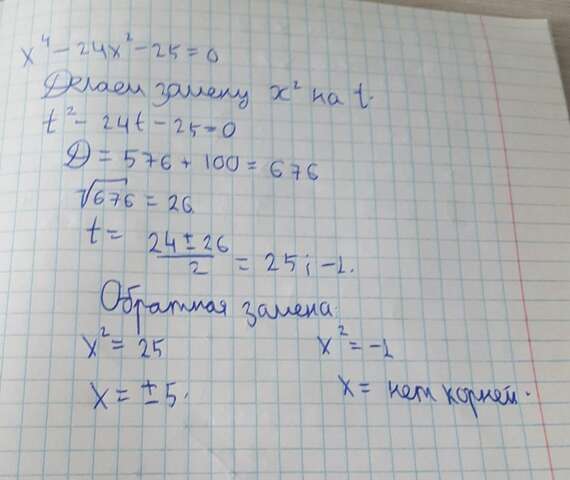 x⁴ - 24x² - 25 = 0
Делаем замену x² на t.
t² - 24t - 25 = 0
D = 576 + 100 = 676
√676 = 26
t = (24 ± 26)/2 = 25; -1.
Обратная замена:
x² = 25 x² = -1
x = ±5. x = нет корней.